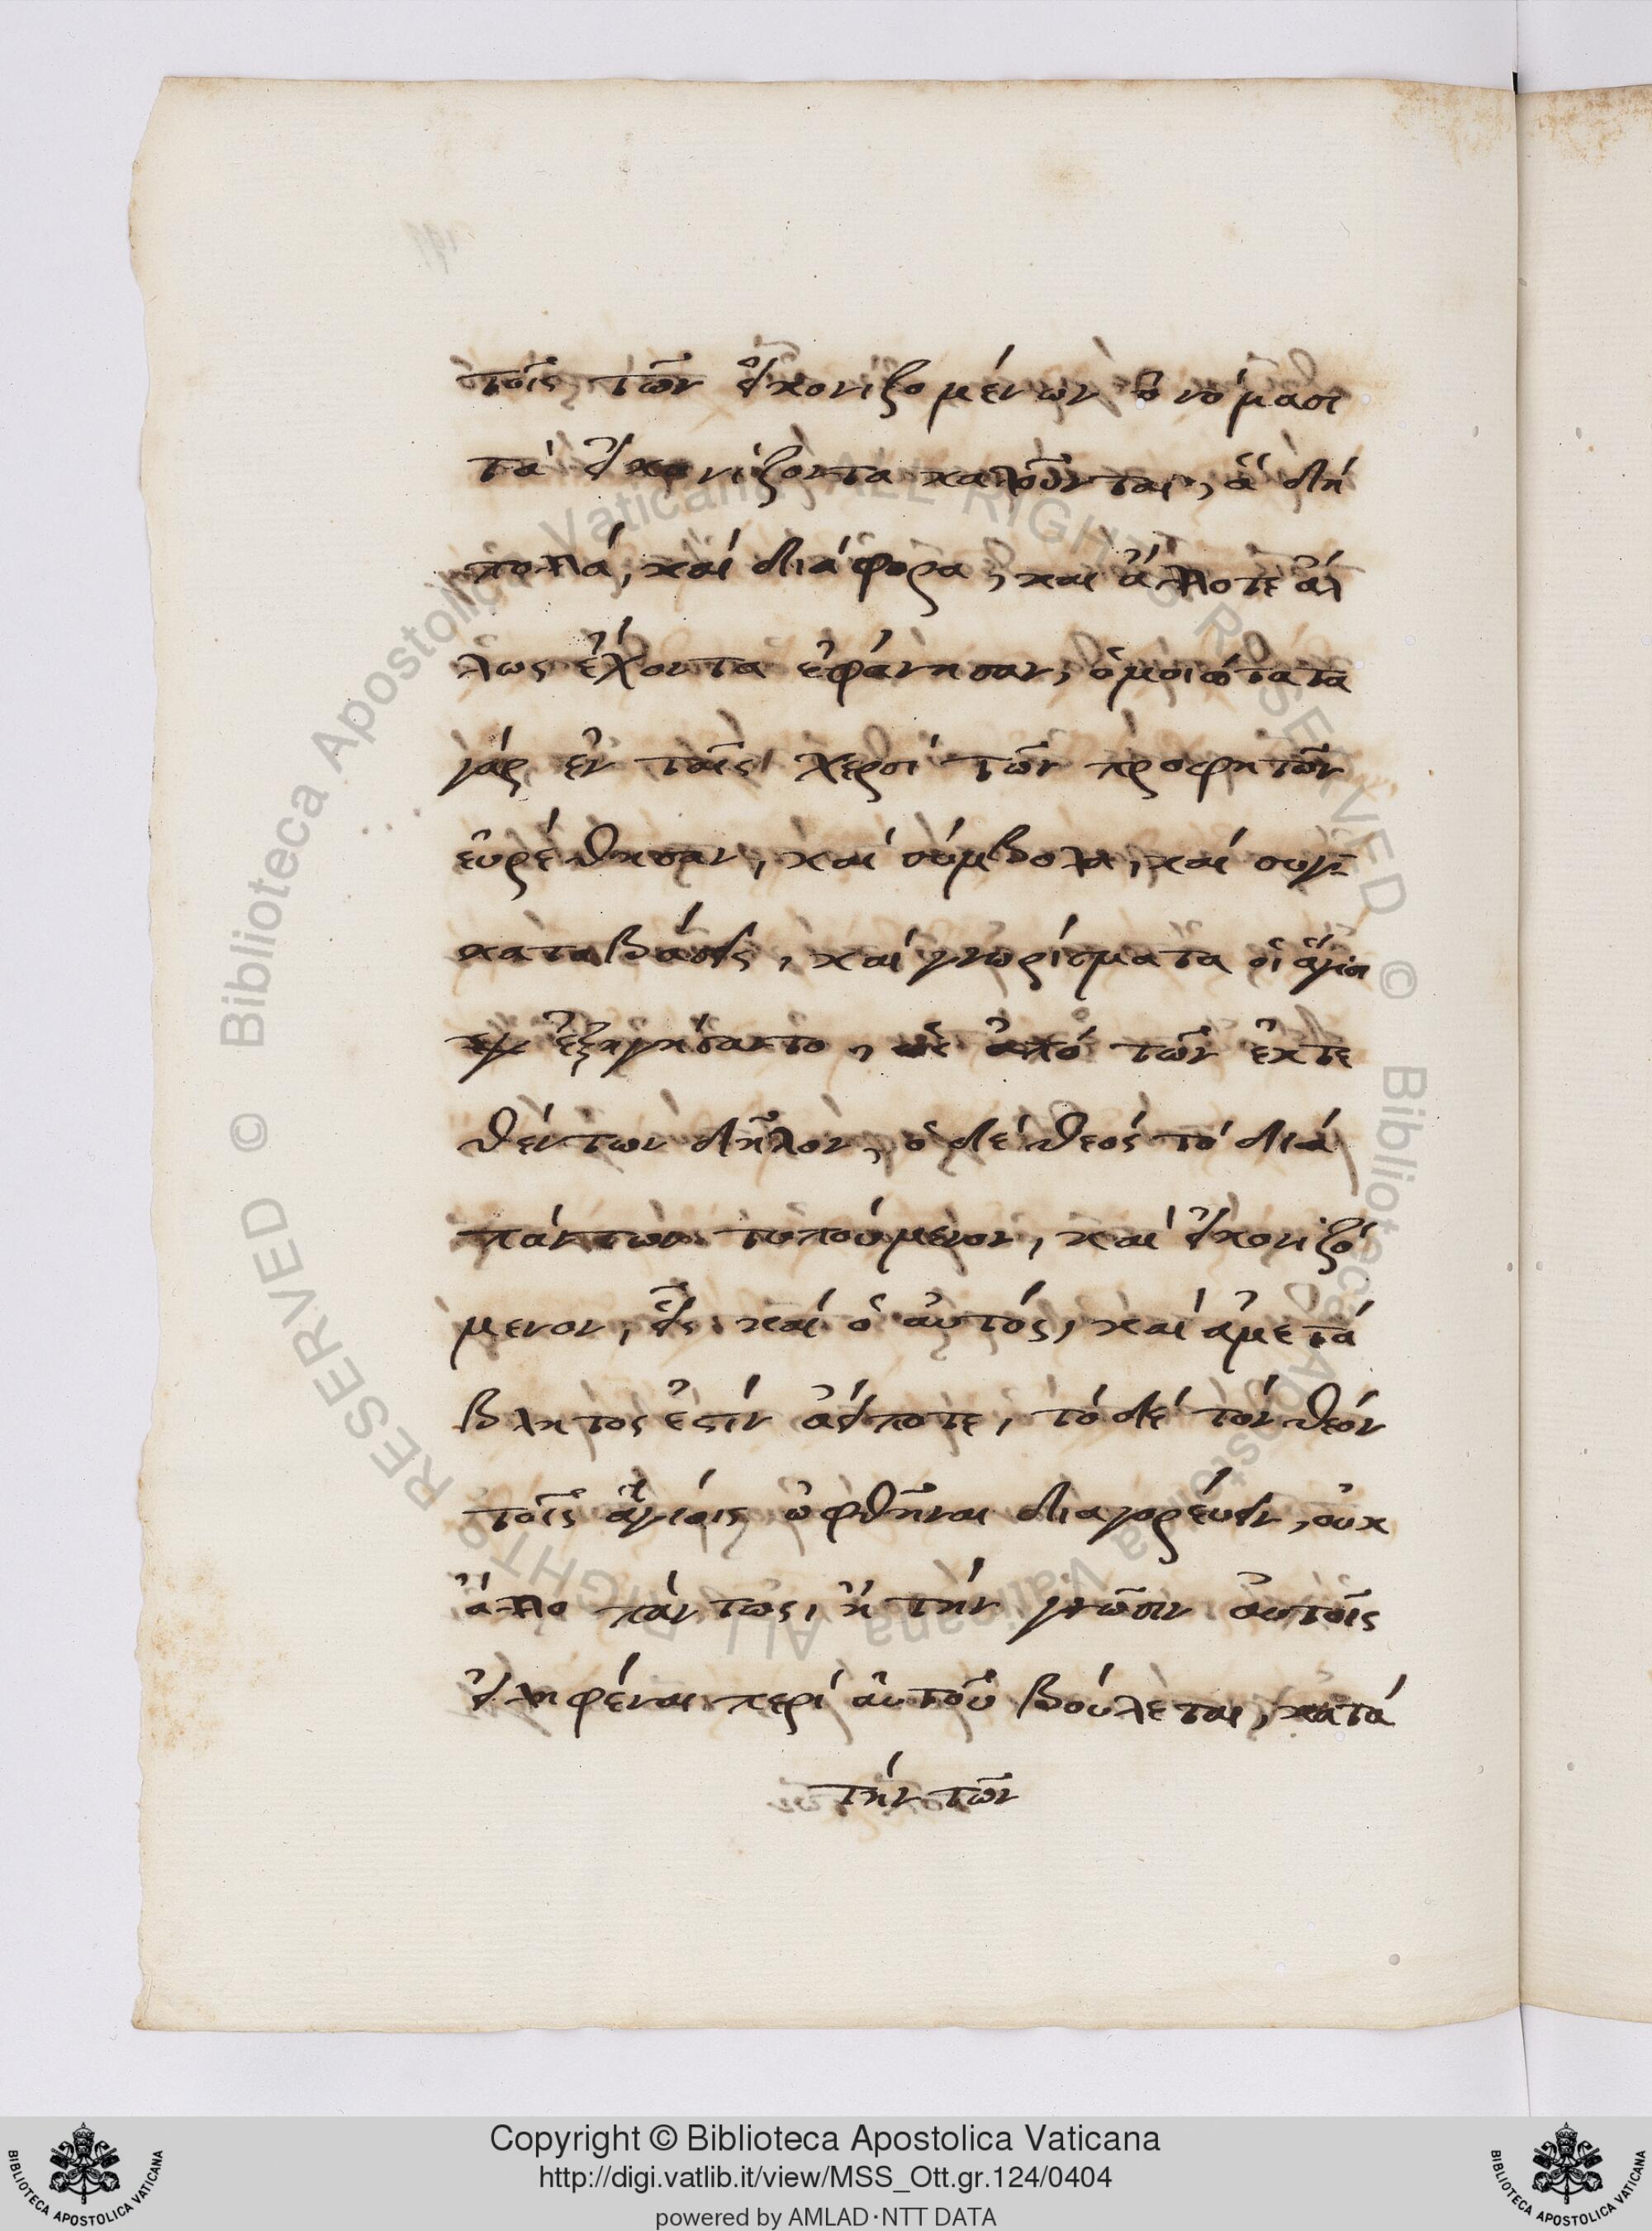 τοῖς τῶν εἰκονιζομένων ὀνόμασι
τὰ εἰκονίζοντα καλοῦνται, ἃ δὴ
πολλά, καί διάφορα, καί ἄλλοτε ἄλ
λως ἔχοντα ἐφάνησαν, ὁμοιότατα
γάρ ἐν ταῖς χερσί τῶν προφητῶν
εὑρέθησαν, καί σύμβολα, καί συγ-
καταβάσεις, καί γνωρίσματα οἱ ἅγιοι
ἐξηγήσαντο, ὡς ἀπό τῶν ἐκτε
θέντων δῆλον, ὁ δέ θεός τό διά
πάντων τυπούμενον, καί εἰκονιζό
μενον, εἷς καί ὁ αὐτός, καί ἀμετά
βλητος ἐστίν ἀείποτε, τό δέ τόν θεόν
τοῖς ἁγίοις ὠφθῆναι διαγορέυειν, οὐκ
ἄλλο πάντως, ἤ τήν γνῶσιν αὐτοῖς
εἰληφέναι περί αὐτοῦ βούλεται, κατά
τήν τῶν
Copyright © Biblioteca Apostolica Vaticana
http://digi.vatlib.it/view/MSS_Ott.gr.124/0404
powered by AMLAD·NTT DATA